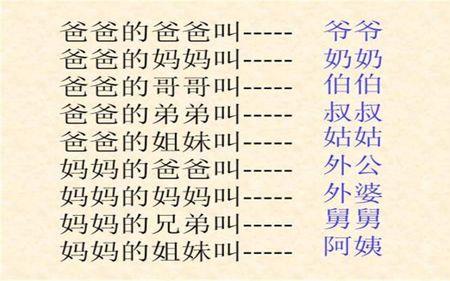 爸爸的爸爸叫----- 爷爷
爸爸的妈妈叫----- 奶奶
爸爸的哥哥叫----- 伯伯
爸爸的弟弟叫----- 叔叔
爸爸的姐妹叫----- 姑姑
妈妈的爸爸叫----- 外公
妈妈的妈妈叫----- 外婆
妈妈的兄弟叫----- 舅舅
妈妈的姐妹叫----- 阿姨